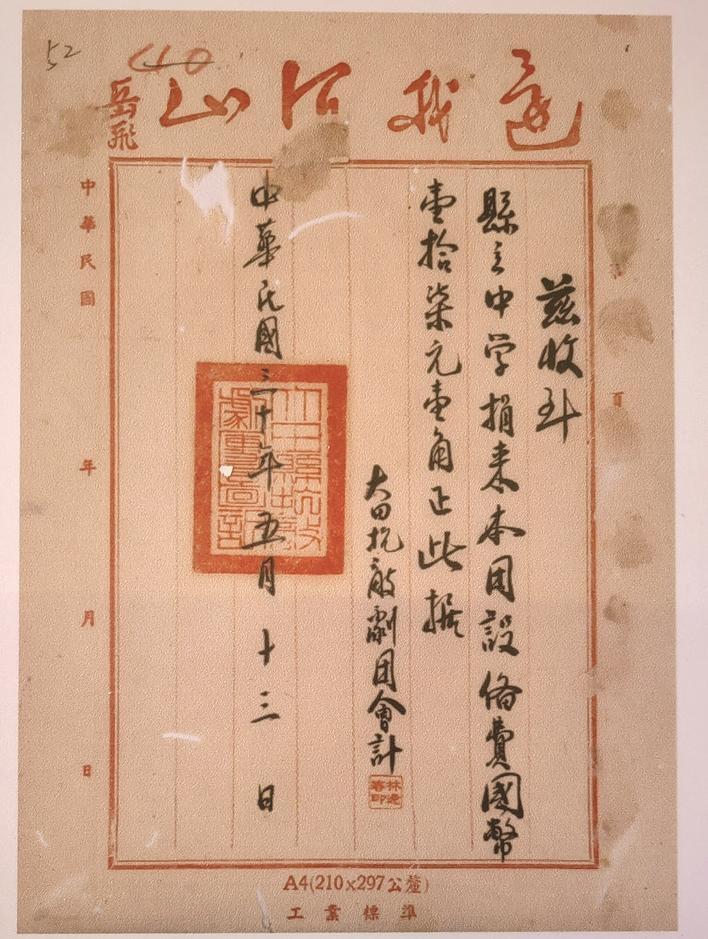 52
410
還我河山
岳飛
兹收到
縣立中学捐來本团設俻費國幣
壹拾柒元壹角正此据
大田抗敵劇团會計
中華民國三十年五月十三日
中華民國 年 月 日
頁
A4(210x297公釐)
工業標準